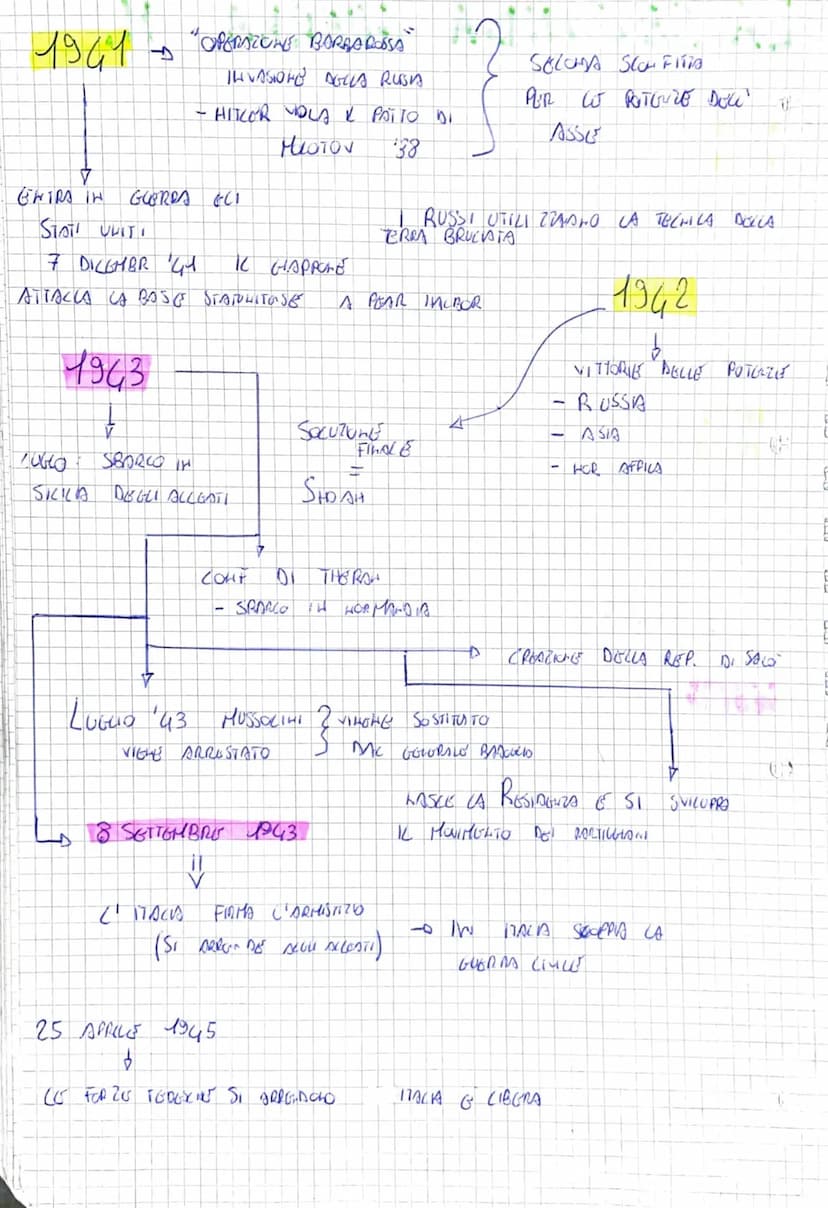 1941 → "OPERAZIONE BARBAROSSA"
INVASIONE DELLA RUSSIA
- HITLER VIOLA IL PATTO DI
MLOTOV '38
SECONDA SCONFITTA
PER LE POTENZE DELL'
ASSE
ENTRA IN GUERRA GLI
STATI UNITI
7 DICEMBR '41 IL GIAPPONE
ATTACCA LA BASE STATUNITENSE A PEAR HALBOR
I RUSSI UTILIZZANO LA TECNICA DELLA
TERRA BRUCIATA
1942
VITTORIE DELLE POTENZE
- RUSSIA
- ASIA
- NOR AFRICA
SOLUZIONE
FINALE
=
SHOAH
1943
LUGLIO: SBARCO IN
SICILIA DEGLI ALLEATI
CONF DI THERAN
- SBARCO IN NORMANDIA
CREAZIONE DELLA REP. DI SALÒ
LUGLIO '43 MUSSOLINI
VIENE ARRESTATO
VIENE SOSTITUTO
DAL GENERALE BADOGLIO
NASCE LA RESISENZA E SI SVILUPPA
IL MOVIMENTO DEI PARTIGIANI
8 SETTEMBRE 1943
L'ITALIA FIRMA L'ARMISTIZIO
(SI ARRENDE AGLI ALLEATI)
→ IN ITALIA SCOPPIA LA
GUERRA CIVILE
25 APRILE 1945
LE FORZE TEDESCHE SI ARRENDONO
ITALIA È LIBERA